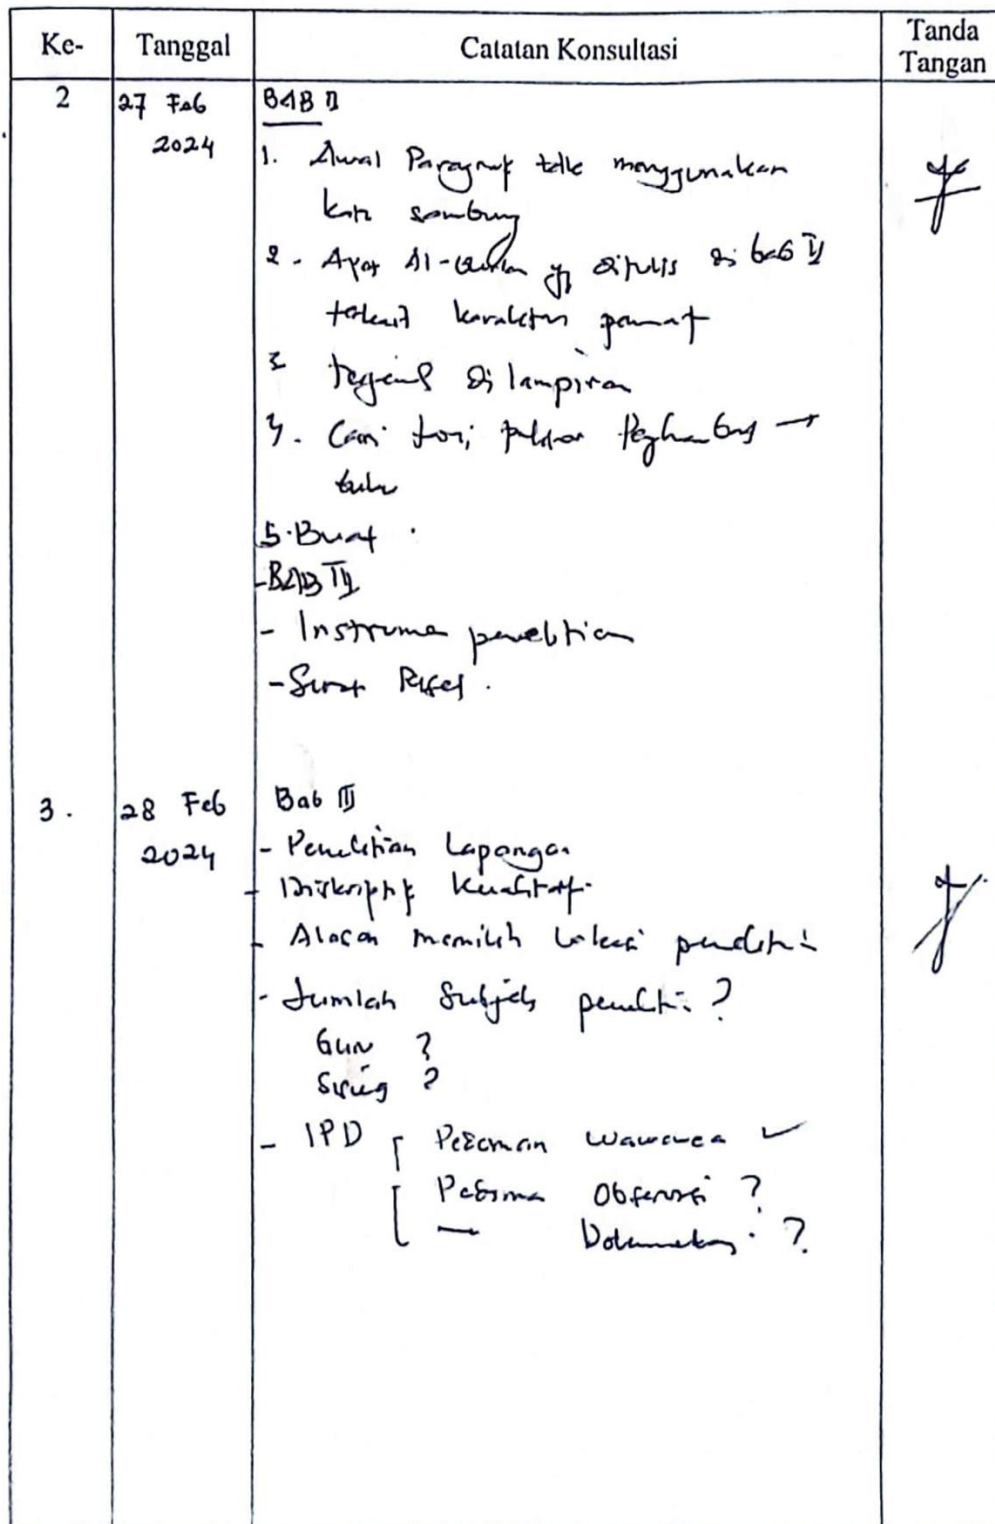 Ke-
Tanggal
Catatan Konsultasi
Tanda
Tangan
2
27 Feb
2024
BAB II
1. Awal Paragraf tdk menggunakan
kata sambung
2. Ayat Al-Quran yg ditulis di bab II
terkait karakter
3 di lampiran
4. Cari
5. Buat
- BAB III
- Instrumen penelitian
- Surat Riset
3.
28 Feb
2024
Bab III
- Penelitian Lapangan
- Diskriptif Kualitatif
- Alasan memilih lokasi peneliti
- Jumlah Subjek peneliti ?
Guru ?
?
- IPD Pedoman wawancara ✓
Pedoman Observasi ?
— Dokumentasi ?